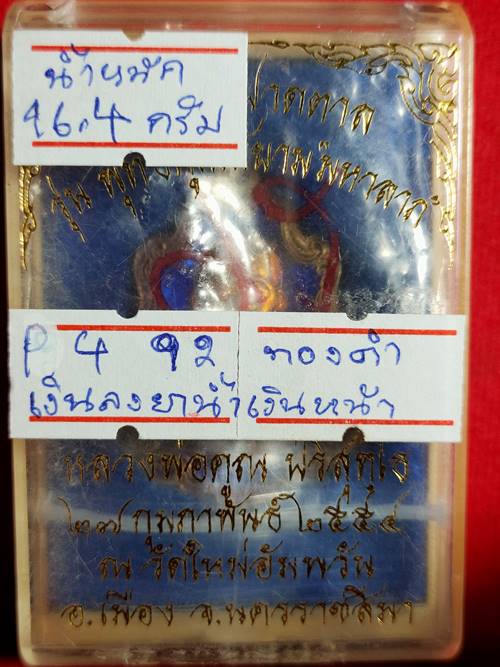 น้ำหนัก
16.4 กรัม
ปาดตาล
รุ่น
มหาลาภ
P 4 92 ทองคำ
เงินลงยาน้ำเงินหน้า
หลวงพ่อคูณ ปริสุทฺโธ
๒๗ กุมภาพันธ์ ๒๕๕๔
ณ วัดใหม่อัมพวัน
อ.เมือง จ.นครราชสีมา